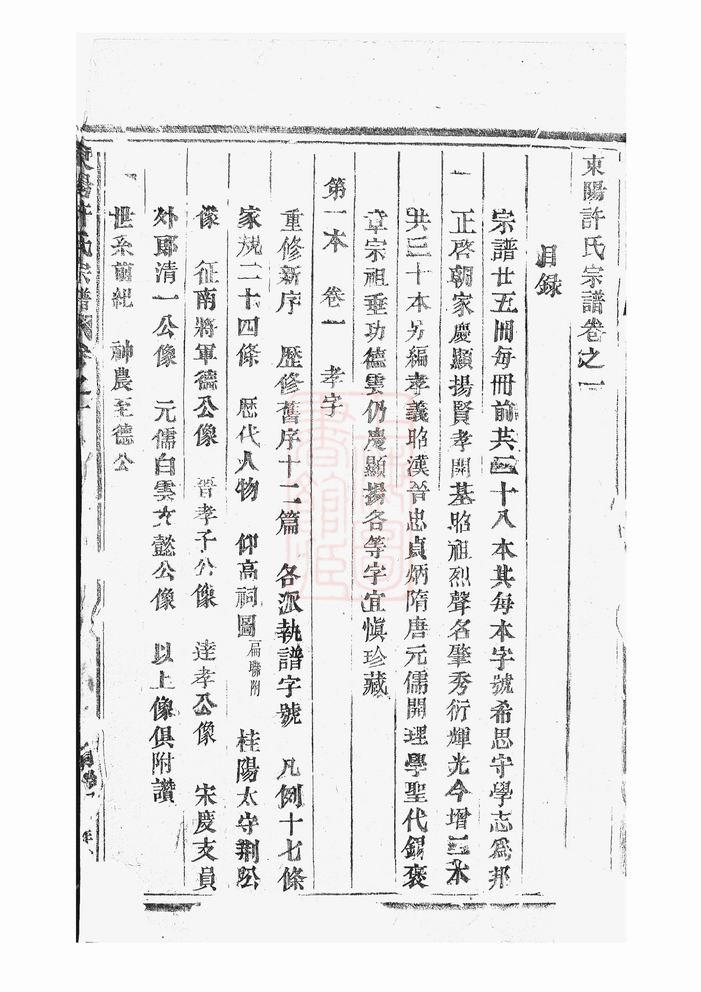 東陽許氏宗譜卷之一
目録
宗譜廿五冊每冊前共二十八本其每本字號希思守學志爲邦
一正啓朝家慶顯揚賢孝開基昭祖烈聲名肇秀衍輝光今增二本
共三十本另編孝義昭漢晉忠貞炳隋唐元儒開理學聖代錫褒
章宗祖垂功德雲仍慶顯揚各等字宜慎珍藏
第一本 卷一 孝字
重修新序 歷修舊序十二篇 各派執譜字號 凡例十七條
家規二十四條 歷代人物 仰高祠圖扁聯附 桂陽太守荆公
像 征南將軍德公像 晉孝子公像 達孝公像 宋慶支員
外郎清一公像 元儒白雲文懿公像 以上像俱附讚
世系前紀 神農至德公
東陽許氏宗譜 卷之一